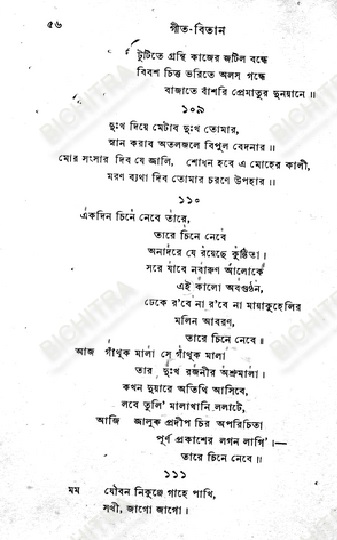 ৫৬
গীত-বিতান
টুটিতে গ্রন্থি কাজের জটিল বন্ধে
বিবশ চিত্ত ভরিতে অলস গন্ধে
বাজাতে বাঁশরি প্রেমাতুর দুনয়ানে॥
১০৯
দুঃখ দিয়ে মেটাব দুঃখ তোমার,
স্নান করাব অতলজলে বিপুল বেদনার॥
মোর সংসার দিব যে জ্বালি, শোধন হবে এ মোহের কালী,
মরণ ব্যথা দিব তোমার চরণে উপহার॥
১১০
একদিন চিনে নেবে তারে,
তারে চিনে নেবে
অনাদরে যে রয়েছে কুণ্ঠিতা।
সরে যাবে নবারুণ আলোকে
এই কালো অবগুণ্ঠন,
ঢেকে র'বে না র'বে না মায়াকুহেলির
মলিন আবরণ,
তারে চিনে নেবে।
আজ গাঁথুক মালা সে গাঁথুক মালা
তার দুঃখ রজনীর অশ্রুমালা।
কখন দুয়ারে অতিথি আসিবে,
লবে তুলি' মালাখানি ললাটে,
আজি জ্বালুক প্রদীপ চির অপরিচিতা
পূর্ণ প্রকাশের লগন লাগি'।—
তারে চিনে নেবে॥
১১১
মম যৌবন নিকুঞ্জে গাহে পাখি,
সখী, জাগো জাগো।
BICHITRA
BICHITRA
BICHITRA
BICHITRA
BICHITRA
BICHITRA